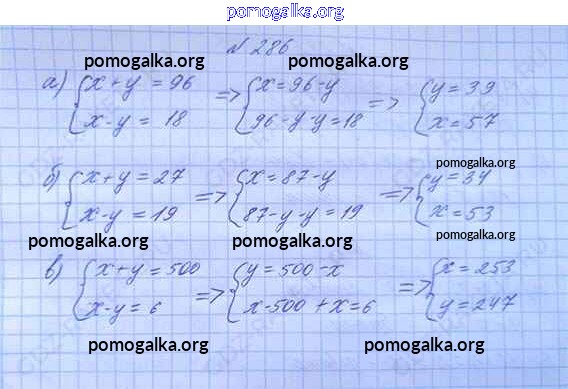 pomogalka.org
№ 286
pomogalka.org pomogalka.org
а) { x + y = 96 => { x = 96 - y => { y = 39
x - y = 18 96 - y - y = 18 x = 57
pomogalka.org
б) { x + y = 27 => { x = 87 - y => { y = 34
x - y = 19 87 - y - y = 19 x = 53
pomogalka.org pomogalka.org pomogalka.org
в) { x + y = 500 => { y = 500 - x => { x = 253
x - y = 6 x - 500 + x = 6 y = 247
pomogalka.org pomogalka.org